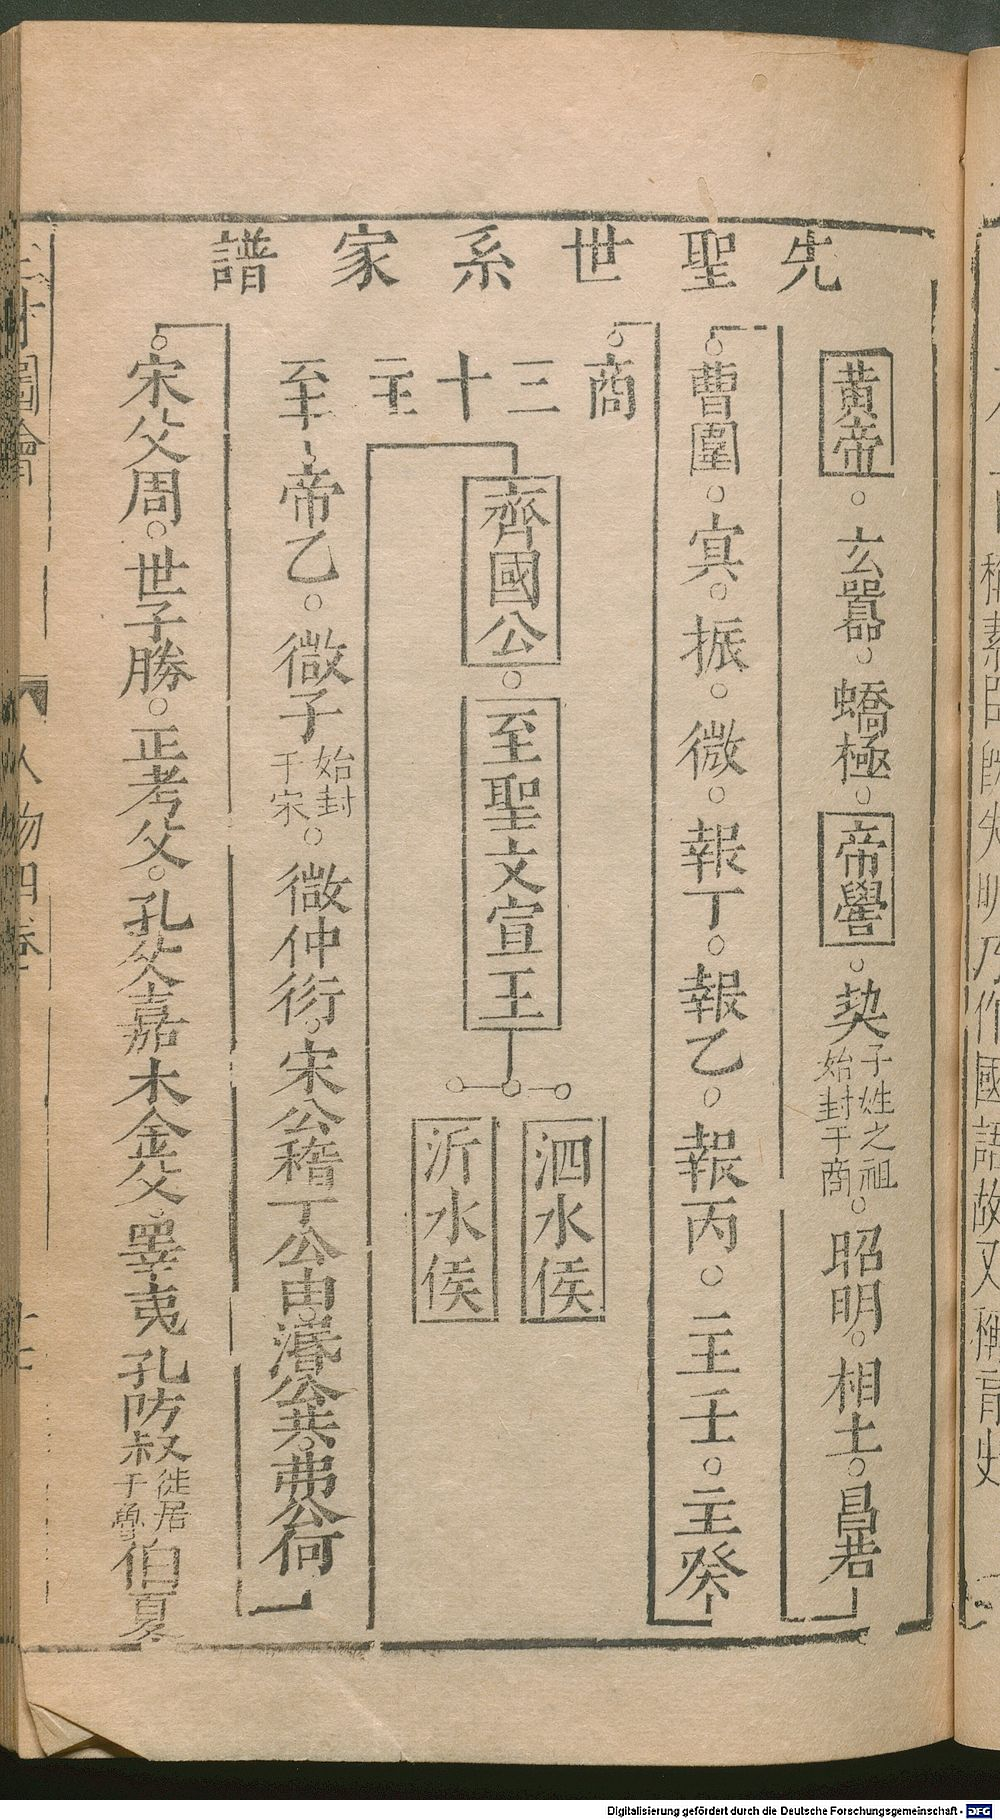 先聖世系家譜
黃帝○玄囂○蟜極○帝嚳○契子姓之祖始封于商○昭明○相土○昌若
曹圉○㝠○振○微○報丁○報乙○報丙○主壬○主癸
商三十主至
齊國公○至聖文宣王
泗水侯
沂水侯
帝乙○微子始封于宋○微仲衍○宋公稽丁公由○湣公共○弗公何
宋父周○世子勝○正考父○孔父嘉木金父○睪夷孔防叔徙居于魯伯夏
人物四卷
Digitalisierung gefördert durch die Deutsche Forschungsgemeinschaft - DFG